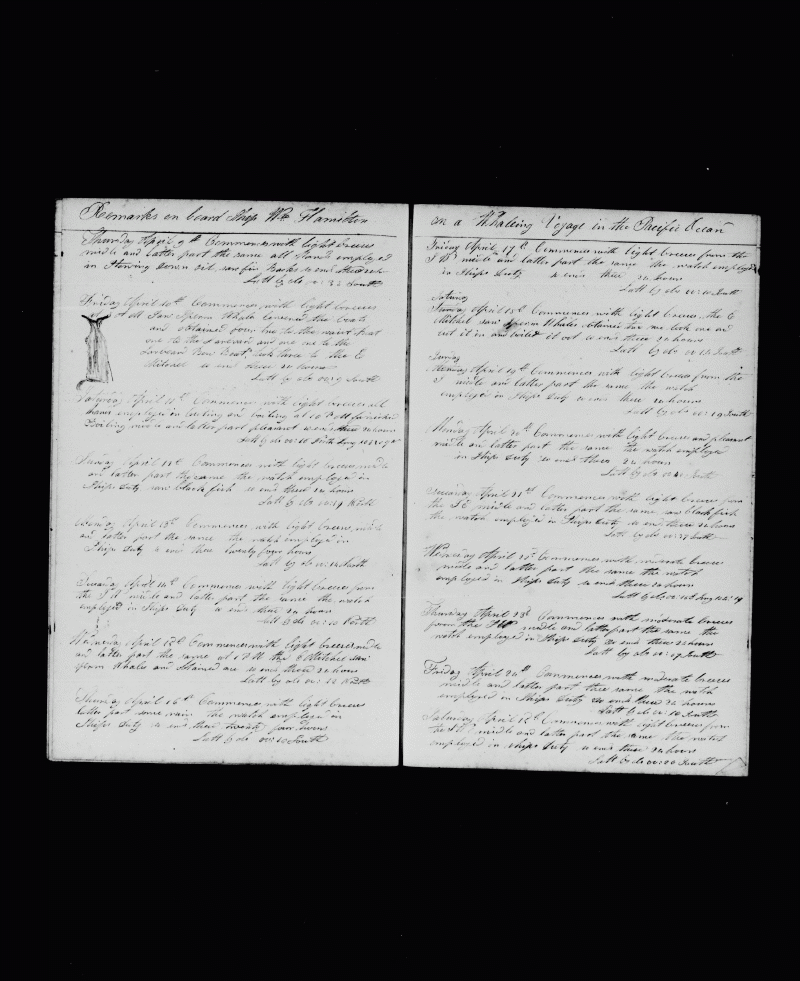 Remarks on board Ship Wm Hamilton
Thursday April 9th Commences with light breezes
middle and latter part the same all hand employed
in Stowing down oil saw fin Backs so ends these
Latt by obs South
Friday April 10th Commences with light breezes
at Saw Sperm Whales Lowered the boats
and obtained four one to the waist Boat
one to the Larboard and one to the
Starboard Bow Boat took three to the E
Mitchel so ends these 24 hours
Latt by obs South
Saturday April 11th Commences with light breezes all
hands employed in Cutting and boiling at 10 PM finished
Boiling middle and latter part pleasant so ends these 24 hours
Latt by obs Long
Sunday April 12th Commences with light breezes middle
and latter part the same the watch employed in
Ships duty saw black fish so ends these 24 hours
Latt by obs North
Monday April 13th Commences with light breezes middle
and latter part the same the watch employed in
Ships duty so ends these twenty four hours
Latt by obs South
Tuesday April 14th Commences with light breezes from
the middle and latter part the same the watch
employed in Ships duty so ends these 24 hours
Latt by obs North
Wednesday April 15th Commences with light breezes middle
and latter part the same at PM the E Mitchel saw
sperm Whales and obtained one so ends these 24 hours
Latt by obs North
Thursday April 16th Commences with light breezes
latter part some rain the watch employed in
Ships duty so ends these twenty four hours
Latt by obs South
on a Whaleing Voyage in the Pacific Ocean
Friday April 17th Commences with light breezes from the
middle and latter part the same the watch employed
in Ships duty so ends these 24 hours
Latt by obs South
Saturday
Sunday April 18th Commences with light breezes the E
Mitchel saw Sperm Whales obtained one we took one and
cut it in and boiled it out so ends these 24 hours
Latt by obs South
Sunday
Monday April 19th Commences with light breezes from the
middle and latter part the same the watch
employed in Ships duty so ends these 24 hours
Latt by obs South
Monday April 20th Commences with light breezes and pleasant
middle and latter part the same the watch employed
in Ships duty so ends these 24 hours
Latt by obs South
Tuesday April 21st Commences with light breezes from
the middle and latter part the same saw black fish
the watch employed in Ships duty so ends these 24 hours
Latt by obs South
Wednesday April 22d Commences with moderate breezes
middle and latter part the same the watch
employed in Ships duty so ends these 24 hours
Latt by obs Long
Thursday April 23d Commences with moderate breezes
from the middle and latter part the same the
watch employed in Ships duty so ends these 24 hours
Latt by obs South
Friday April 24th Commences with moderate breezes
middle and latter part the same the watch
employed in Ships duty so ends these 24 hours
Latt by obs South
Saturday April 25th Commences with light breezes from
North middle and latter part the same the watch
employed in ships duty so ends these 24 hours
Latt by obs South